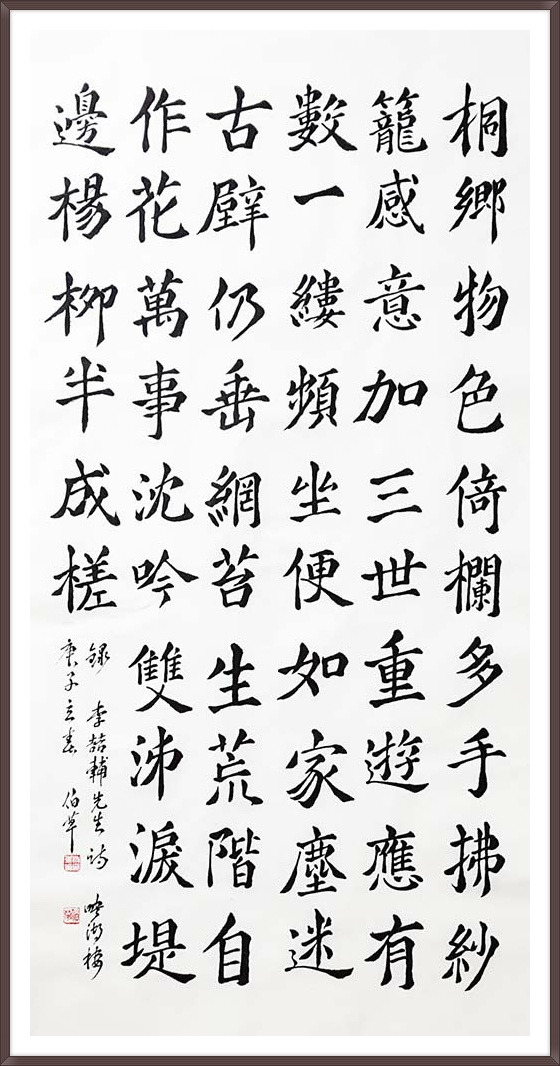 桐鄉物色倚欄多手拂紗
籠感意加三世重遊應有
數一縷頻坐便如家塵迷
古壁仍垂網苔生荒階自
作花萬事沈吟雙沛淚堤
邊楊柳半成槎
録 李喆輔先生詩 映湖樓
庚子立春 伯草